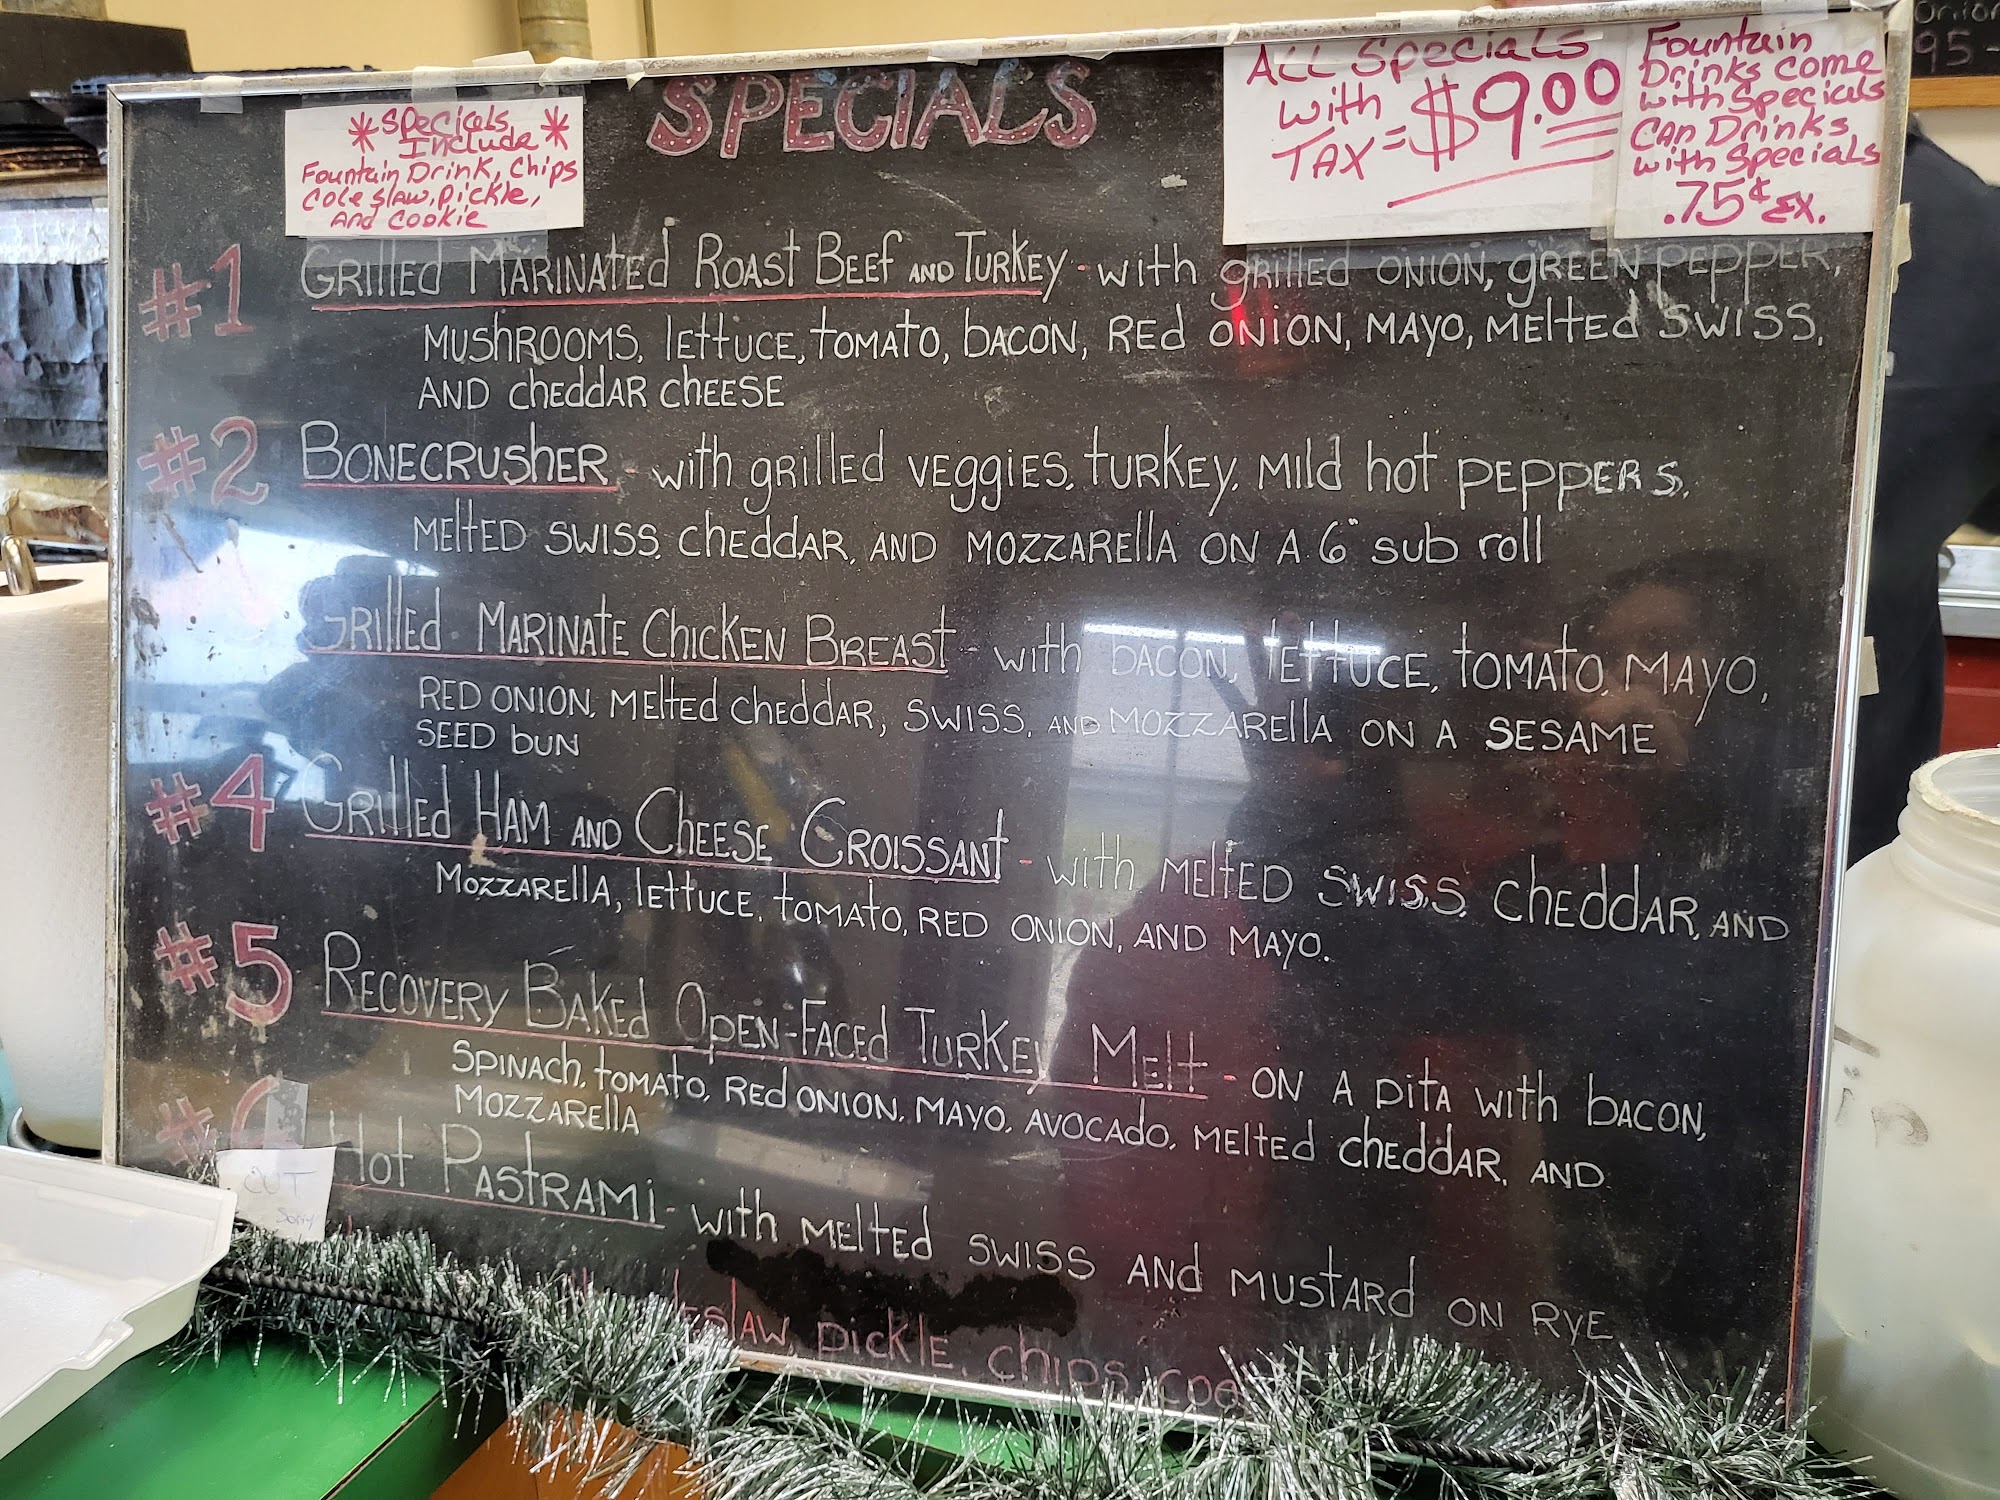 SPECIALS
* Specials *
Include
Fountain Drink, Chips
Coleslaw, Pickle,
And Cookie
ALL Specials
with
TAX = $9.00
Fountain
Drinks come
with Specials
CAN Drinks
with Specials
.75¢ EX.
Onion
95-
#1 Grilled Marinated Roast Beef and Turkey - with grilled onion, green pepper,
mushrooms, lettuce, tomato, bacon, red onion, mayo, melted swiss,
and cheddar cheese
#2 Bonecrusher - with grilled veggies, turkey, mild hot peppers,
melted swiss, cheddar, and mozzarella on a 6" sub roll
Grilled Marinate Chicken Breast - with bacon, lettuce, tomato, mayo,
red onion, melted cheddar, swiss, and mozzarella on a sesame
seed bun
#4 Grilled Ham and Cheese Croissant - with melted swiss, cheddar, and
mozzarella, lettuce, tomato, red onion, and mayo.
#5 Recovery Baked Open-Faced Turkey Melt - on a pita with bacon,
spinach, tomato, red onion, mayo, avocado, melted cheddar, and
mozzarella
#6 Hot Pastrami - with melted swiss and mustard on rye
OUT
Sorry
slaw, pickle, chips, coo